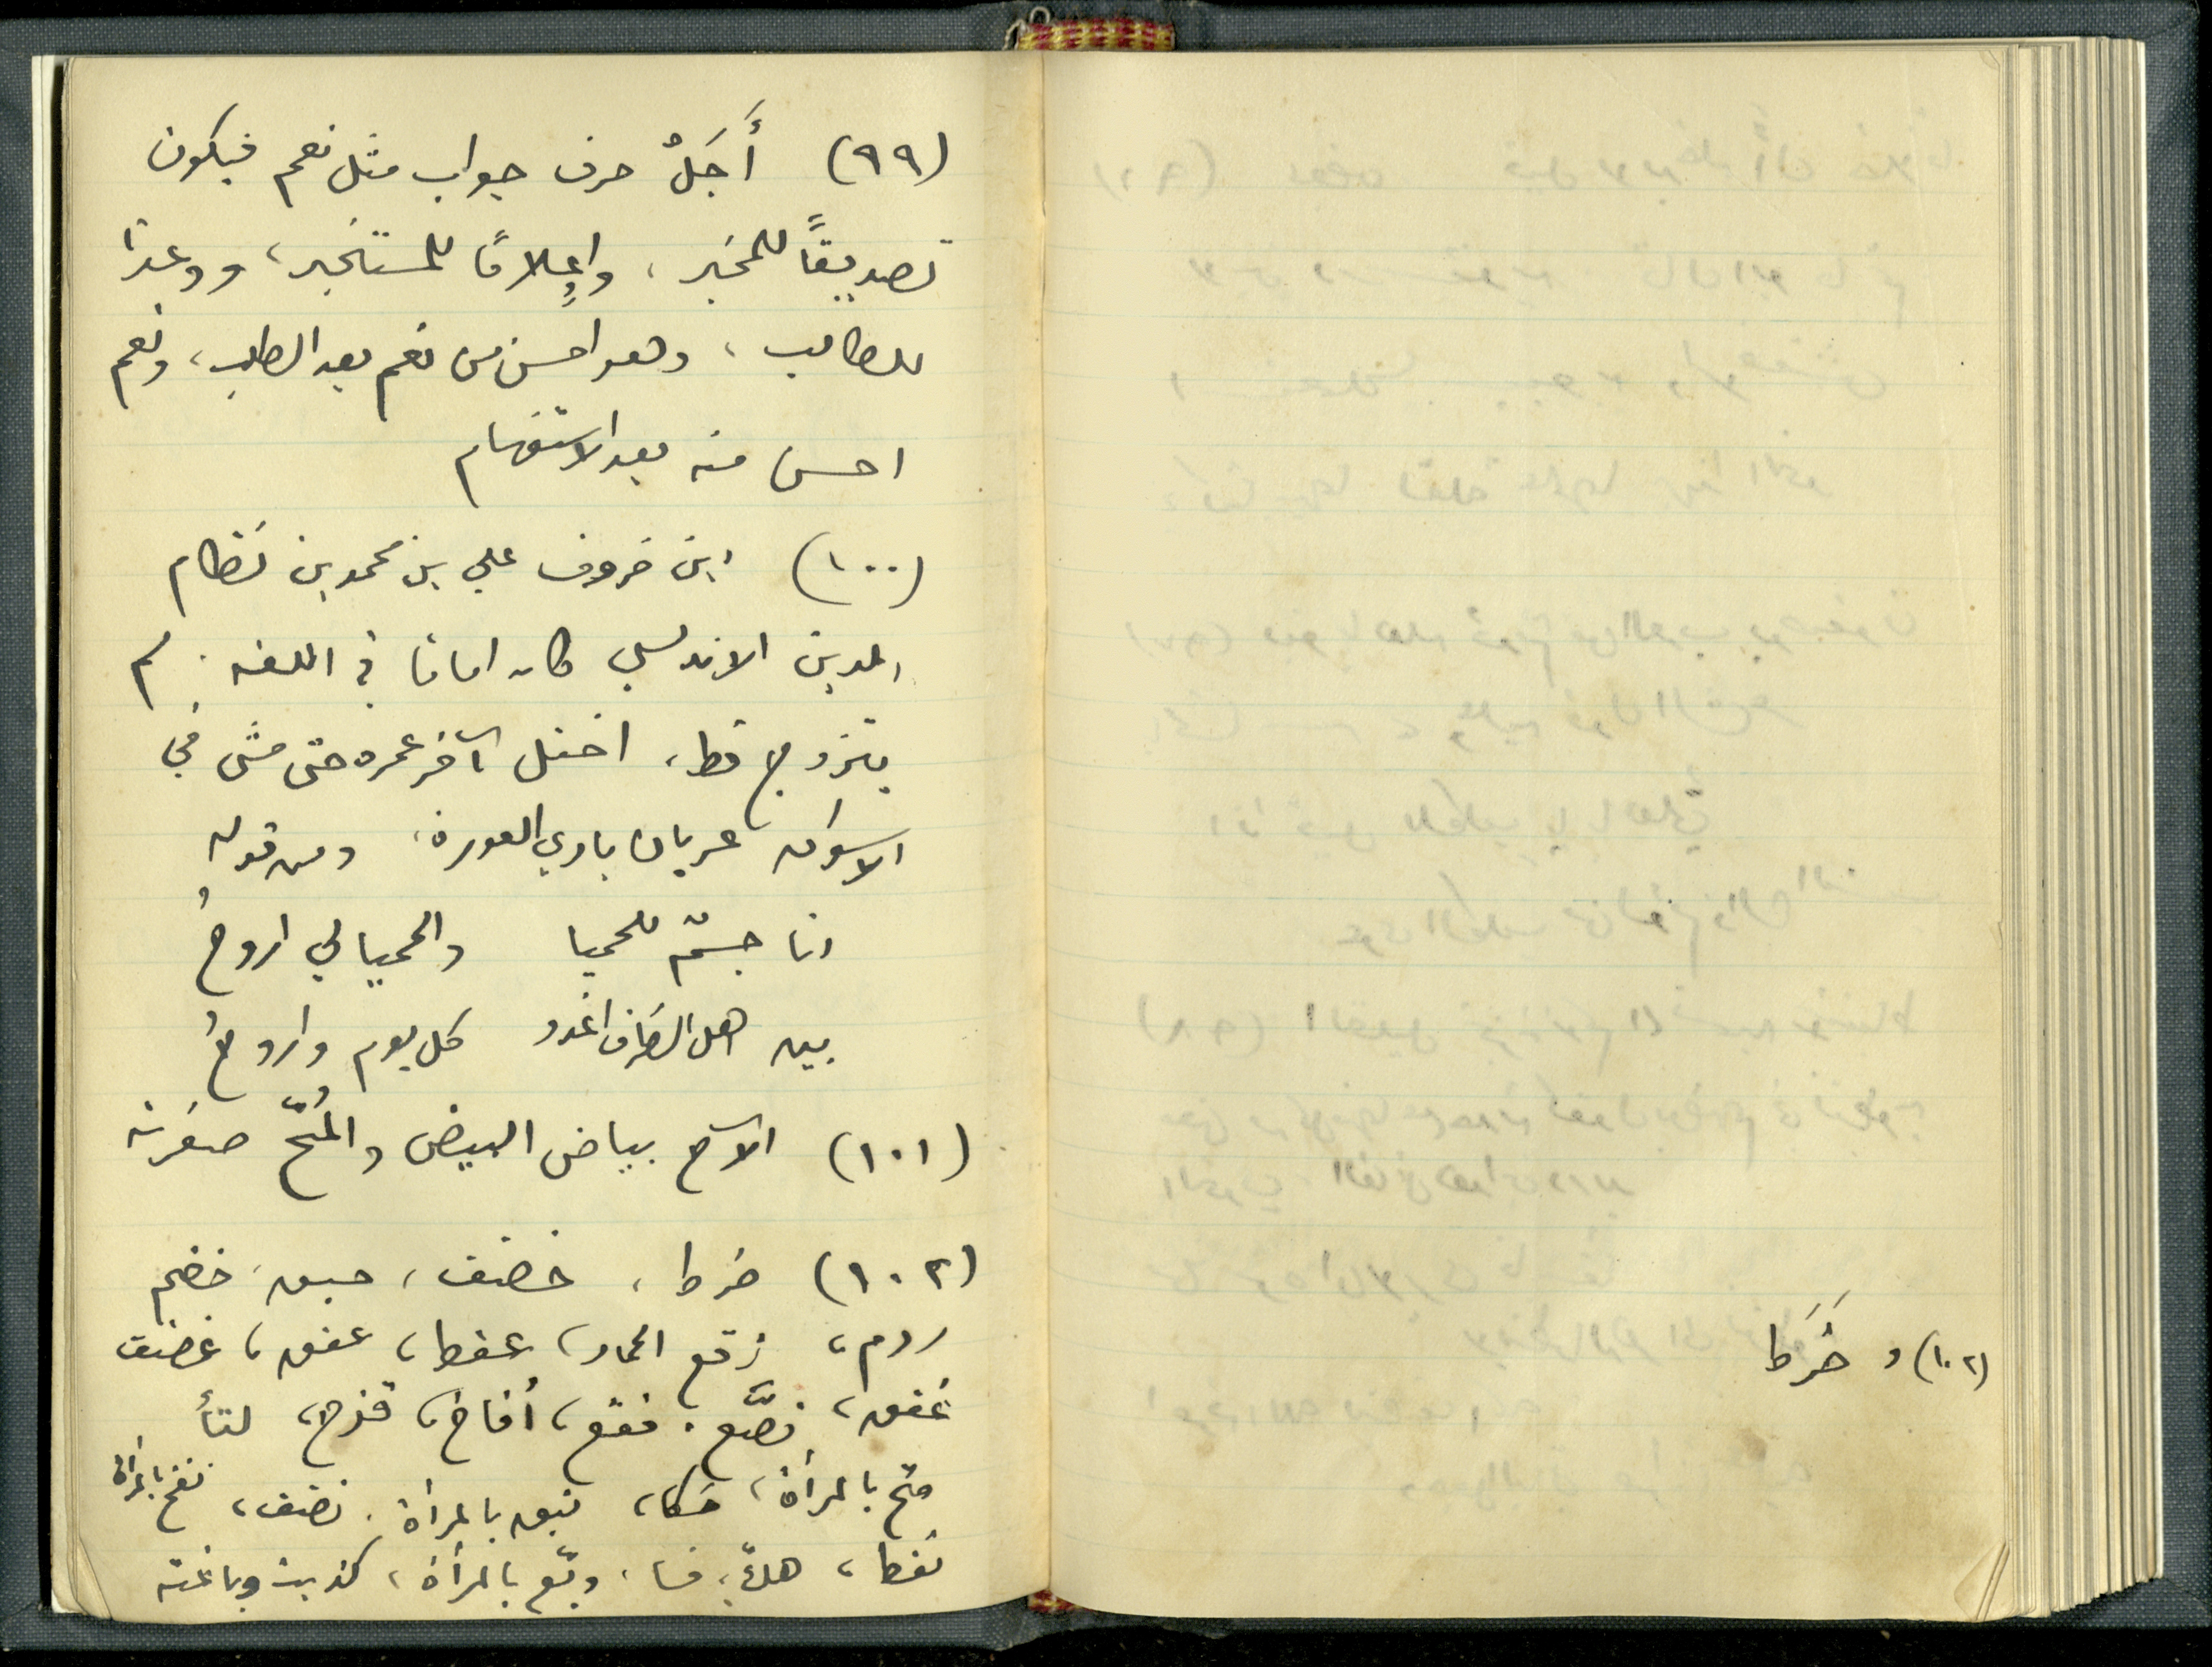 (٩٩) أَجَلْ حرف جواب مثل نعم فيكون
تصديقًا للمخبر، وإعلامًا للمستخبر، ووعدًا
للطالب، وهو احسن من نعم بعد الطلب، ونعم
احسن منه بعد الاستفهام
(١٠٠) ابن خروف علي بن محمد بن نظام
الدين الاندلسي كان اماما في اللغه. لم
يتزوج قط، اختل آخر عمره حتى مشى في
الاسواق عريان بادي العورة، ومن قوله
انا جسمٌ للحميا والحميا لي اروحُ
بين اهل الظرف اغدو كل يوم واروحُ
(١٠١) الآح بياض البيض والمُحّ صفرته
(١٠٢) ضرط، خضف، حبق، خضم
ردم، زقع الحمار، عفط، عفق، غضف
غفق، فصّع. فقع، أفاخ، قزح، لتأ
متح بالمرأة، نبق بالمرأة. نضف، نفخ بالمرأة
نفط، فسا، وبّع بالمرأة، كذبت وباغته
(١٠٢) و ضَرَط